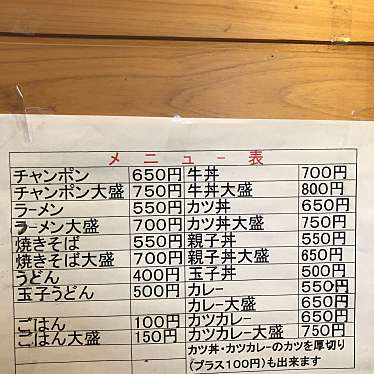 メニュー表
チャンポン 650円 牛丼 700円
チャンポン大盛 750円 牛丼大盛 800円
ラーメン 550円 カツ丼 650円
ラーメン大盛 700円 カツ丼大盛 750円
焼きそば 550円 親子丼 550円
焼きそば大盛 700円 親子丼大盛 650円
うどん 400円 玉子丼 500円
玉子うどん 500円 カレー 550円
カレー大盛 650円
ごはん 100円 カツカレー 650円
ごはん大盛 150円 カツカレー大盛 750円
カツ丼・カツカレーのカツを厚切り
(プラス100円)も出来ます